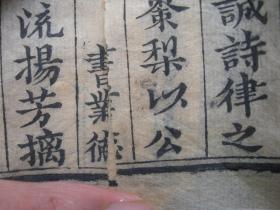 誠詩律之
棗梨以公
書業德
流揚芳摛